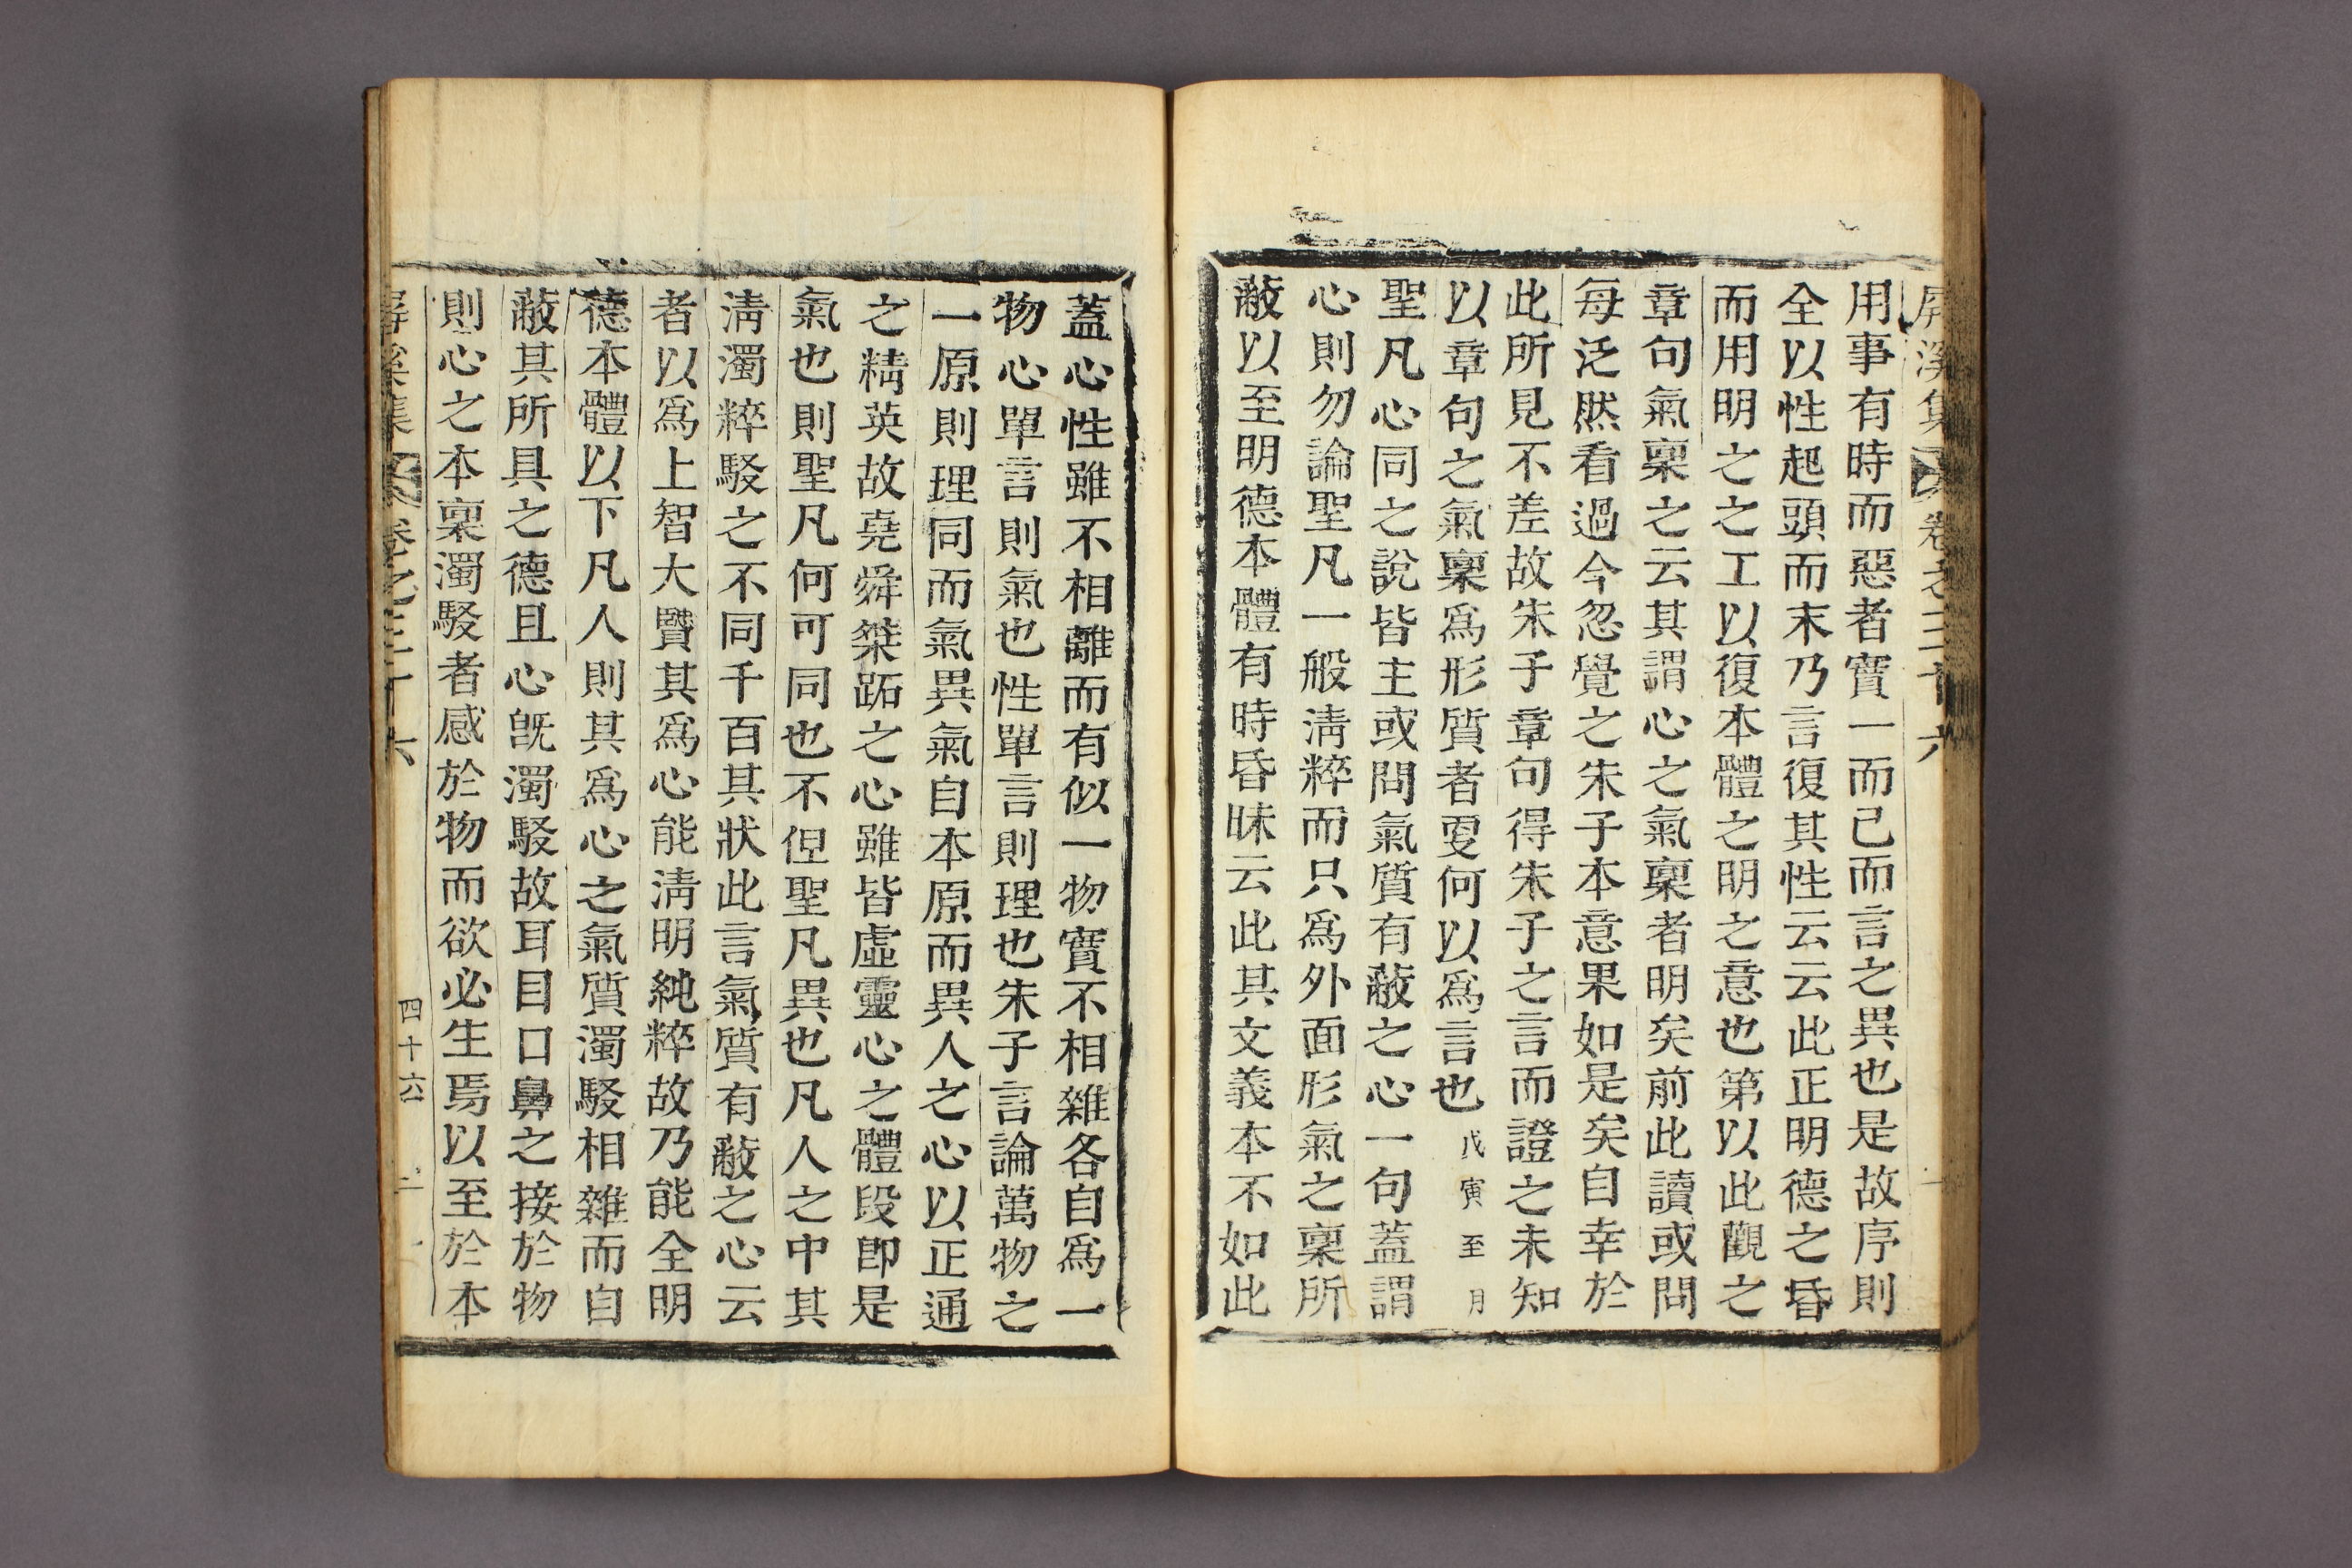 屛溪集 卷之三十六
用事有時而惡者實一而已而言之異也是故序則
全以性起頭而末乃言復其性云云此正明德之昏
而用明之之工以復本體之明之意也第以此觀之
章句氣稟之云其謂心之氣稟者明矣前此讀或問
每泛然看過今忽覺之朱子本意果如是矣自幸於
此所見不差故朱子章句得朱子之言而證之未知
以章句之氣稟爲形質者更何以爲言也戊寅至月
聖凡心同之說皆主或問氣質有蔽之心一句蓋謂
心則勿論聖凡一般淸粹而只爲外面形氣之稟所
蔽以至明德本體有時昏昧云此其文義本不如此
蓋心性雖不相離而有似一物實不相雜各自爲一
物心單言則氣也性單言則理也朱子言論萬物之
一原則理同而氣異氣自本原而異人之心以正通
之精英故堯舜桀跖之心雖皆虛靈心之體段卽是
氣也則聖凡何可同也不但聖凡異也凡人之中其
淸濁粹駁之不同千百其狀此言氣質有蔽之心云
者以爲上智大賢其爲心能淸明純粹故乃能全明
德本體以下凡人則其爲心之氣質濁駁相雜而自
蔽其所具之德且心旣濁駁故耳目口鼻之接於物
則心之本稟濁駁者感於物而欲必生焉以至於本
屛溪集 卷之三十六 四十六